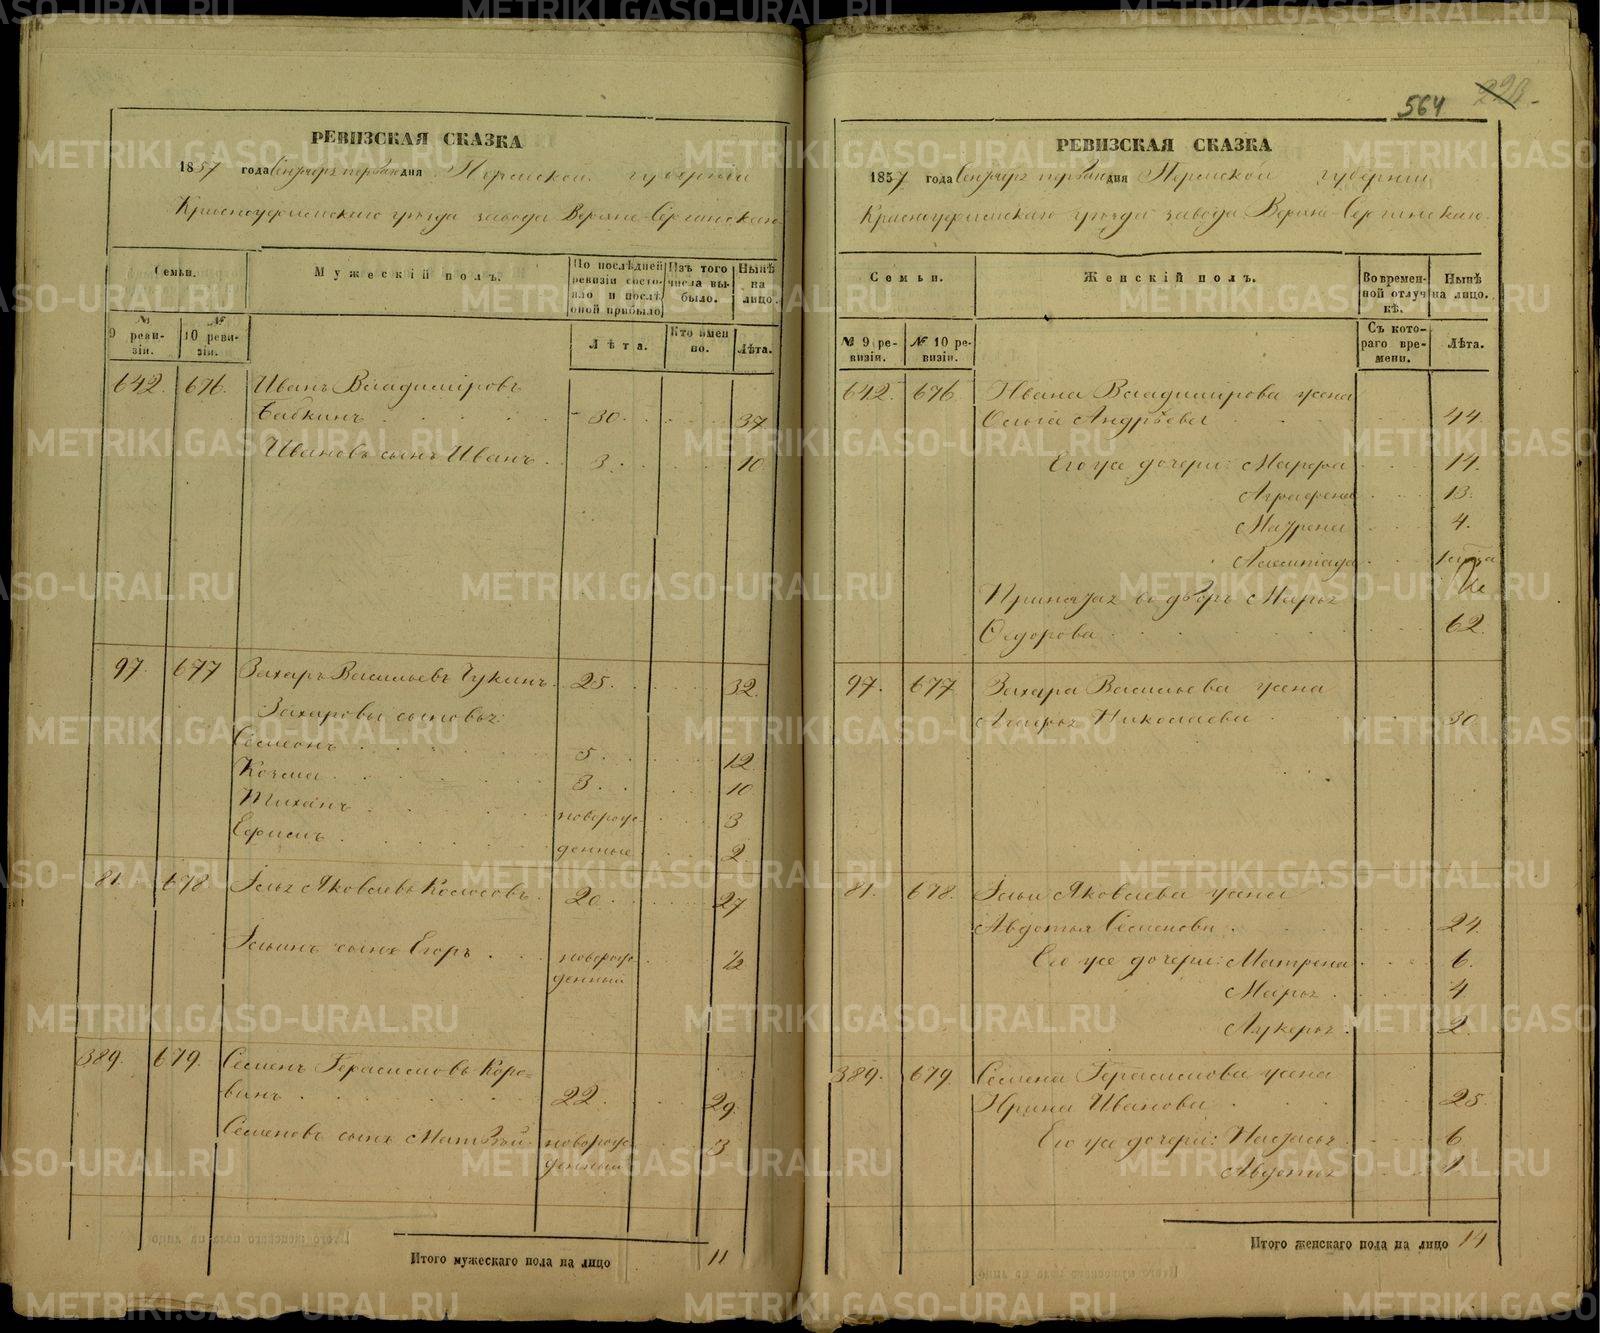 РЕВИЗСКАЯ СКАЗКА
1857 года Сентября первая дня Пермской губернии
Красноуфимскаго уезда завода Верхне-Сергинскаго
Семьи.
Мужескій полъ.
По послѣдней ревизіи состояло и послѣ оной прибыло
Изъ того числа выбыло.
Нынѣ на лицо.
№ 9 ревизіи.
№ 10 ревизіи.
Лѣта.
Кто имен но.
Лѣта.
642. 676. Иванъ Владиміровъ
Бабкинъ 30. 37
Ивановъ сынъ Иванъ 3. 10
97. 677 Захаръ Васильевъ Чукинъ 25. 32.
Захаровы сыновья:
Семеонъ 5. 12
Козма 3. 10
Тиханъ новорож 3
Ефимъ денные 2
81. 678 Илья Яковлевъ Колосовъ 20. 27
Ильинъ сынъ Егоръ новорож ½
денный
389. 679. Семенъ Герасимовъ Коро=
винъ 22. 29.
Семеновъ сынъ Матвѣй новорож 3
денный
Итого мужескаго пола на лицо 11
564
РЕВИЗСКАЯ СКАЗКА
1857 года Сентября первая дня Пермской губерніи
Красноуфимскаго уезда завода Верхне-Сергинскаго.
Семьи.
Женскій полъ.
Во временной отлучкѣ.
Нынѣ на лицо.
№ 9 ревизіи.
№ 10 ревизіи.
Съ котораго времени.
Лѣта.
642. 676 Ивана Владимірова жена
Ольга Андрѣева 44.
Его же дочери: Марфа 14.
Аграфена 13.
Маурена 4.
Олимпіада
во дворъ Марья
Ѳедорова 62.
97. 677 Захара Васильева жена
Николаева 30
81. 678. Ильи Яковлева жена
Авдотья Семенова 24
Его же дочери: Матрена 6.
Марья 4
Лукерья 2.
389. 679. Семена Герасимова жена
Ирина Иванова 25.
Его же дочери: Настасья 6
Авдотья 1
Итого женскаго пола на лицо 14